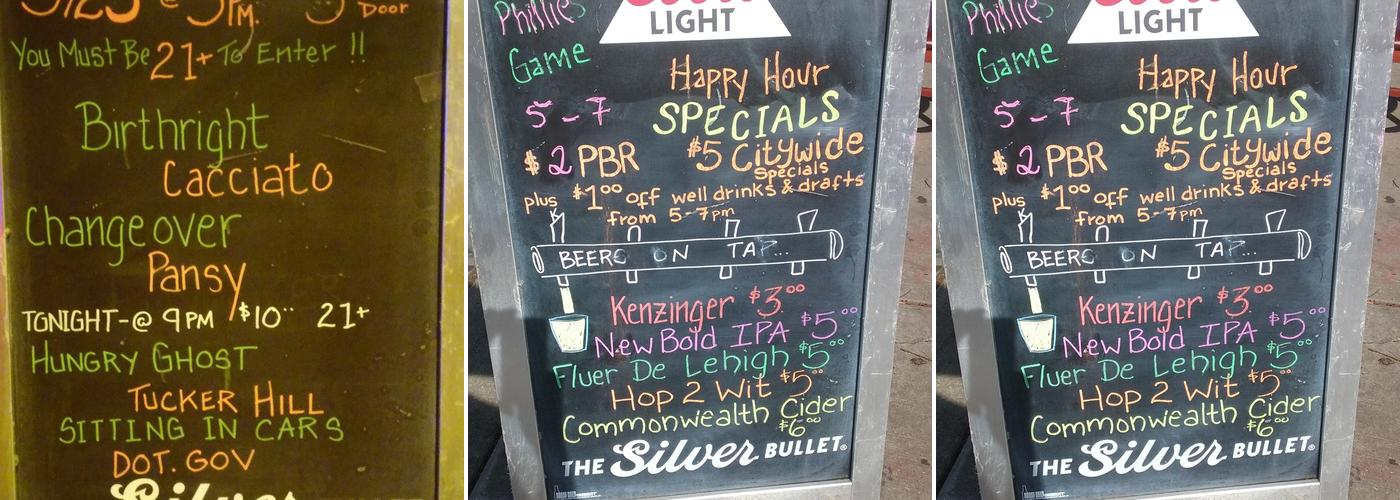 5/25 @ 5PM. Door
You Must Be 21+ To Enter !!
Birthright
Cacciato
Changeover
Pansy
TONIGHT-@ 9PM $10 21+
HUNGRY GHOST
TUCKER HILL
SITTING IN CARS
DOT. GOV
Silver
Phillies
Game
5-7
LIGHT
Happy Hour
SPECIALS
$2 PBR $5 Citywide
Specials
plus $1.00 off well drinks & drafts
from 5-7pm
BEERS ON TAP...
Kenzinger $3.00
New Bold IPA $5.00
Fluer De Lehigh $5.00
Hop 2 Wit $5.00
Commonwealth Cider
$6.00
THE Silver BULLET®
Phillies
Game
5-7
LIGHT
Happy Hour
SPECIALS
$2 PBR $5 Citywide
Specials
plus $1.00 off well drinks & drafts
from 5-7pm
BEERS ON TAP...
Kenzinger $3.00
New Bold IPA $5.00
Fluer De Lehigh $5.00
Hop 2 Wit $5.00
Commonwealth Cider
$6.00
THE Silver BULLET®